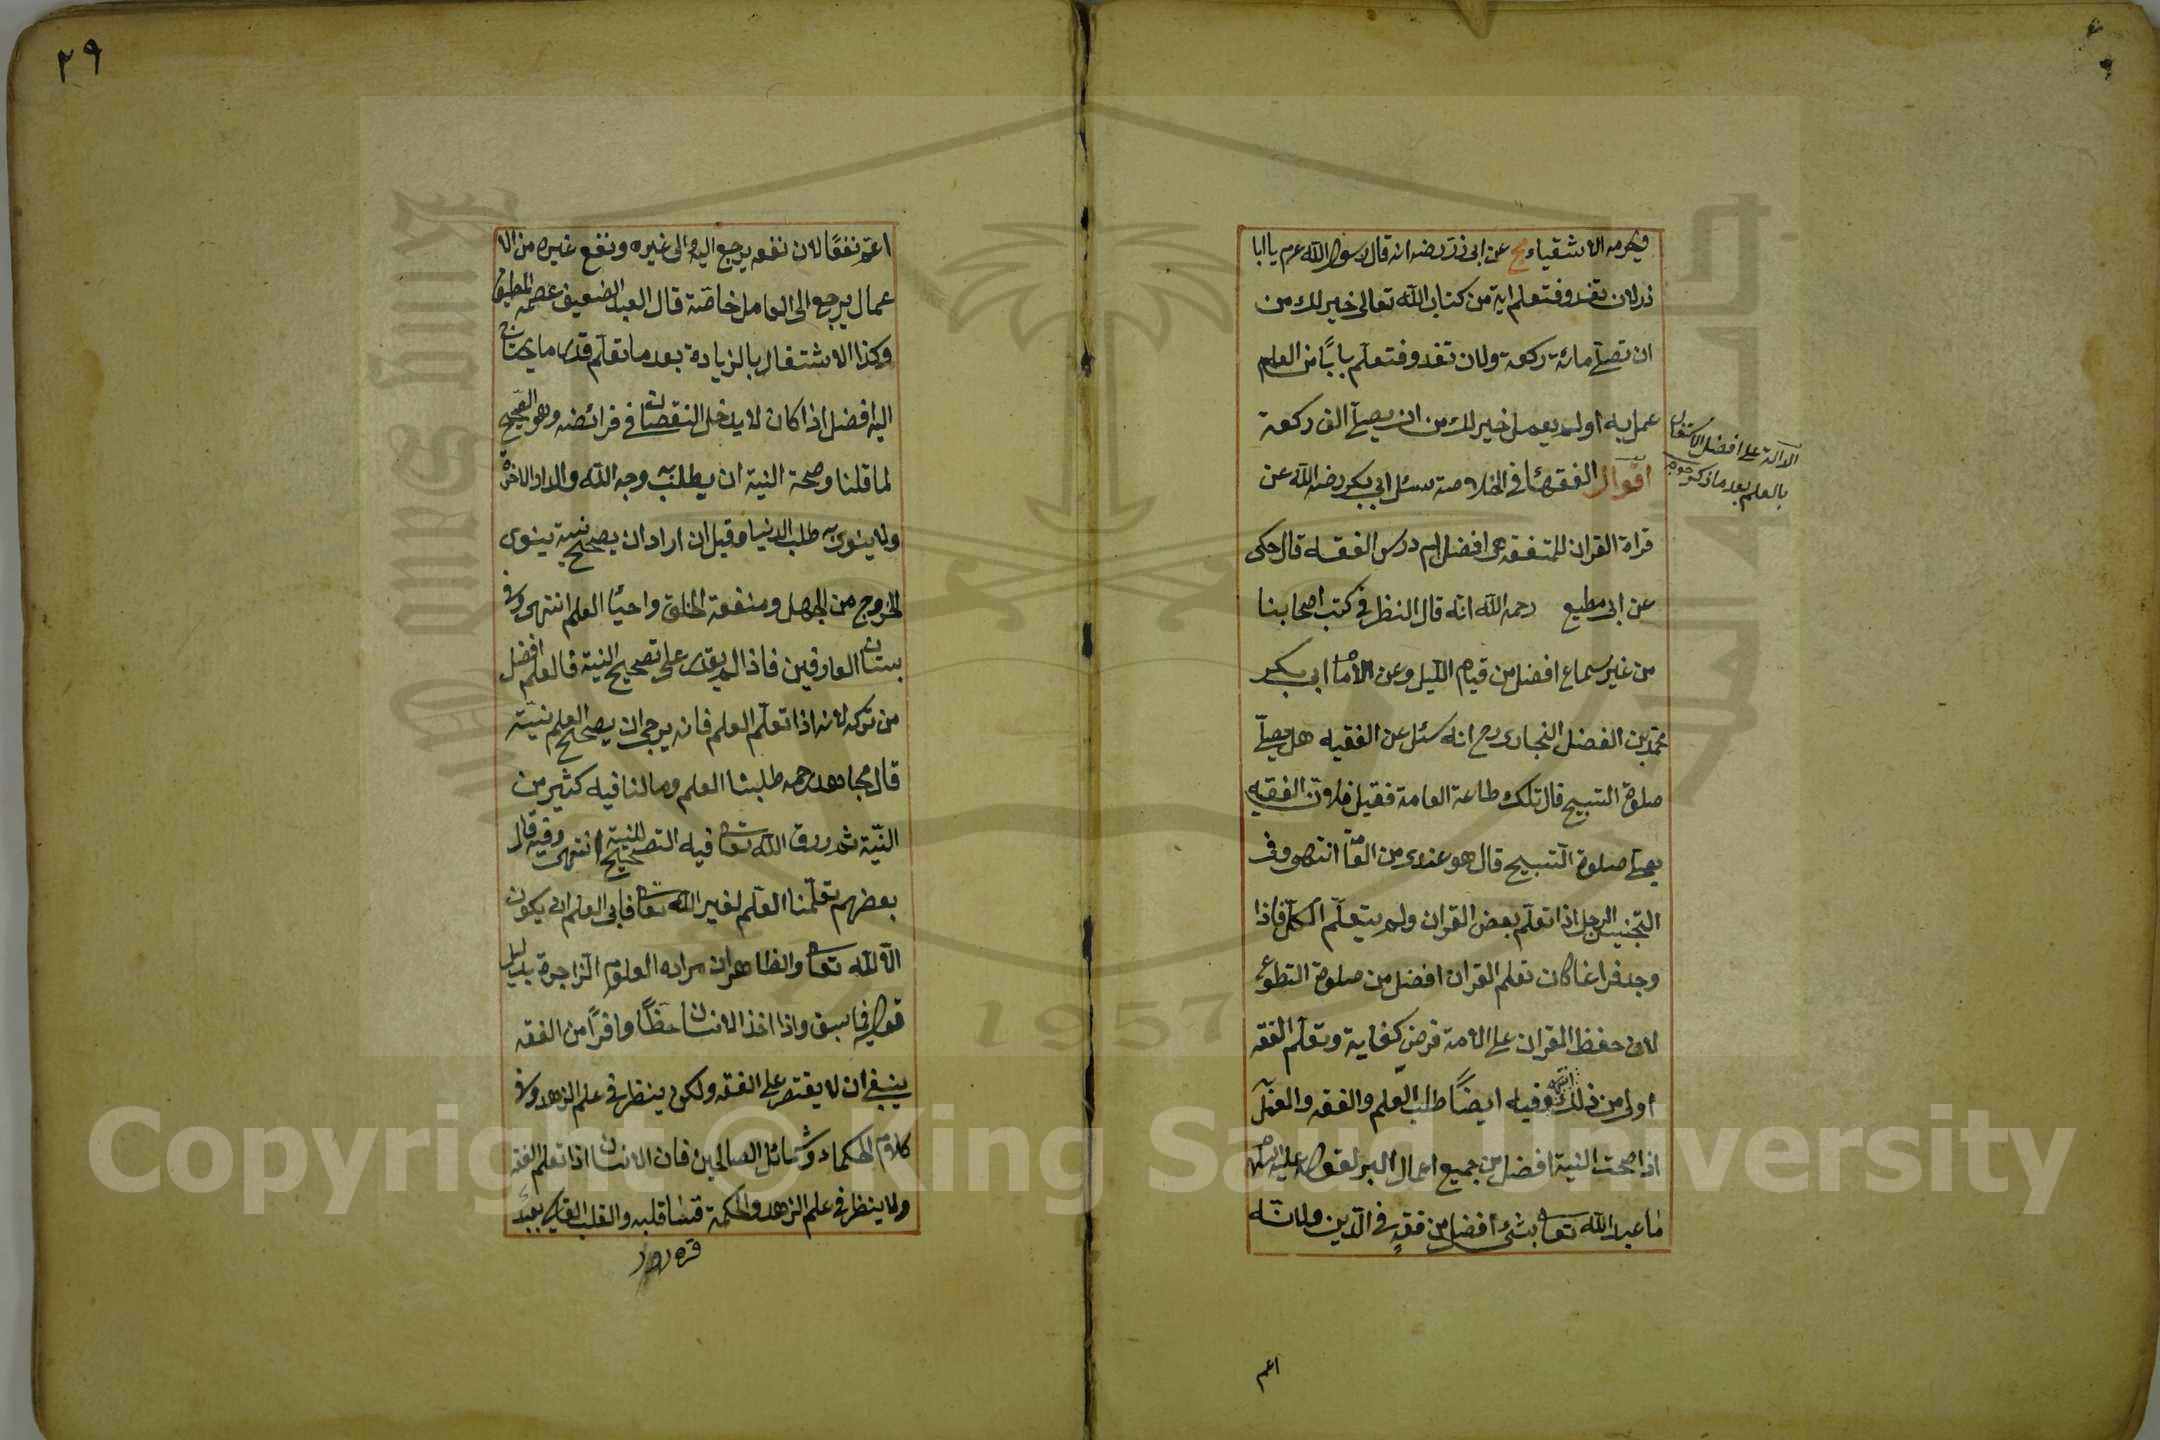 ويحرمه الاشقياء مج عن ابى ذر رضه انه قال رسول الله عم يا ابا
ذر لان تغدو فتعلم اية من كتاب الله تعالى خير لك من
ان تصلى مائة ركعة ولان تغدو فتعلم بابًا من العلم
عمل به اولم يعمل خير لك من ان يصلى الف ركعة
اقوال الفقهاء فى الخلاصة سئل ابى بكر رضه الله عن
قراة القران للمتفقه هى افضل ام درس الفقه قال حكى
عن ابى مطيع رحمه الله انه قال النظر فى كتب اصحابنا
من غير سماع افضل من قيام الليل وعن الامام ابى بكر
محمد بن الفضل البخارى رح انه سئل عن الفقيه هل يصلى
صلوة التسبيح قال تلك طاعة العامة فقيل فلان الفقيه
يصلى صلوة التسبيح قال هو عندى من العامة انتهى وفى
التجنيس الرجل اذا تعلم بعض القران ولم يتعلم الكل فاذا
وجد فراغا كان تعلم القران افضل من صلوة التطوع
لان حفظ القران على الامة فرض كفاية وتعلم الفقه
اولى من ذلك انتهى وفيه ايضًا طلب العلم والفقه والعمل
اذا صحت النية افضل من جميع اعمال البر لقوله عليه السلام
ما عبد الله تعا بشئ افضل من فقه فى الدين ولانه
الدالة على افضل الاشتغال
بالعلم بعد ما ذكر
اعم
٢٩
اعم نفعًا لان نفعه يرجع اليه والى غيره ونفع غيره من الا
عمال يرجع الى العامل خاصة قال العبد الضعيف عصمه
وكذا الاشتغال بالزيادة بعد ما تعلم قدر ما يحتاج
اليه افضل اذا كان لا يدخل النقصان فى فرائضه وهو الصحيح
لما قلنا وصحة النية ان يطلب به وجه الله والدار الاخرة
ولا ينوى به طلب الدنيا وقيل ان اراد ان يصحح نيته ينوى
الخروج من الجهل ومنفعة الخلق واحياء العلم انتهى وفى
بستان العارفين فاذا لم يقدر على تصحيح النية فالعلم افضل
من تركه لانه اذا تعلم العلم فانه يرجى ان يصحح العلم نيته
قال مجاهد رحمه طلبنا العلم وما لنا فيه كثير من
النية ثم رزق الله تعا فيه التصحيح للنية انتهى وفيه قال
بعضهم تعلمنا العلم لغير الله تعا فابى العلم ان يكون
الا لله تعا والظاهر ان مراده العلوم الزاجرة بدليل
قوله فيما سبق واذا اخذ الانسان حظًا وافرًا من الفقه
ينبغى ان لا يقتصر على الفقه ولكن ينظر فى علم الزهد وفى
كلام الحكماء وشمائل الصالحين فان الانسان اذا تعلم الفقه
ولا ينظر فى علم الزهد والحكمة قسا قلبه والقلب القاسى بعيد
1957
Copyright © King Saud University